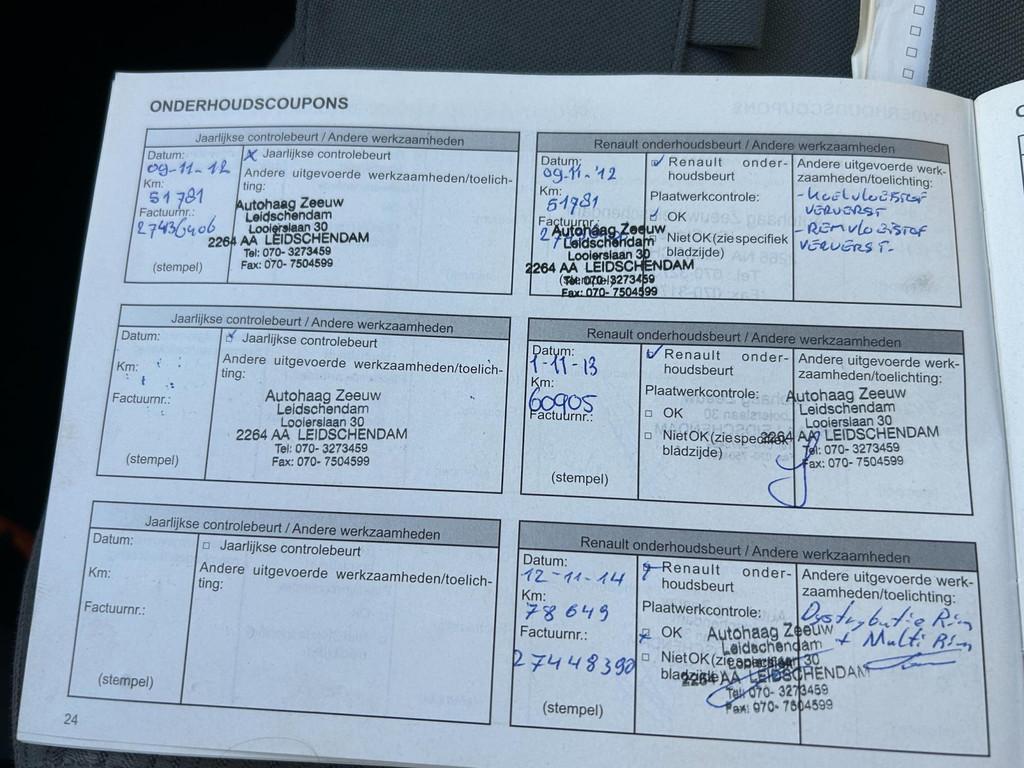 ONDERHOUDSCOUPONS
Jaarlijkse controlebeurt / Andere werkzaamheden
Datum:
09-11-12
Km:
51781
Factuurnr.:
(stempel)
Jaarlijkse controlebeurt
Andere uitgevoerde werkzaamheden/toelich-
ting:
Autohaag Zeeuw
Leidschendam
Looierslaan 30
2264 AA LEIDSCHENDAM
Tel: 070- 3273459
Fax: 070- 7504599
Renault onderhoudsbeurt / Andere werkzaamheden
Datum:
09-11-'12
Km:
51781
Factuurnr.:
Renault onder-
houdsbeurt
Plaatwerkcontrole:
OK
Niet OK (zie specifiek
bladzijde)
Autohaag Zeeuw
Leidschendam
Looierslaan 30
2264 AA LEIDSCHENDAM
Tel: 070- 3273459
Fax: 070- 7504599
Andere uitgevoerde werk-
zaamheden/toelichting:
- KOELVLOEISTOF
VERVERST
- REMVLOEISTOF
VERVERST-
Jaarlijkse controlebeurt / Andere werkzaamheden
Datum:
Km:
Factuurnr.:
(stempel)
Jaarlijkse controlebeurt
Andere uitgevoerde werkzaamheden/toelich-
ting:
Autohaag Zeeuw
Leidschendam
Looierslaan 30
2264 AA LEIDSCHENDAM
Tel: 070- 3273459
Fax: 070- 7504599
Renault onderhoudsbeurt / Andere werkzaamheden
Datum:
1-11-13
Km:
60905
Factuurnr.:
(stempel)
Renault onder-
houdsbeurt
Plaatwerkcontrole:
OK
Niet OK (zie specifiek
bladzijde)
Andere uitgevoerde werk-
zaamheden/toelichting:
Autohaag Zeeuw
Leidschendam
Looierslaan 30
2264 AA LEIDSCHENDAM
Tel: 070- 3273459
Fax: 070- 7504599
Jaarlijkse controlebeurt / Andere werkzaamheden
Datum:
Km:
Factuurnr.:
(stempel)
Jaarlijkse controlebeurt
Andere uitgevoerde werkzaamheden/toelich-
ting:
Renault onderhoudsbeurt / Andere werkzaamheden
Datum:
12-11-14
Km:
78649
Factuurnr.:
27448390
(stempel)
Renault onder-
houdsbeurt
Plaatwerkcontrole:
OK
Niet OK (zie
Autohaag Zeeuw
Leidschendam
2264 AA LEIDSCHENDAM
Tel: 070- 3273459
Fax: 070- 7504599
Andere uitgevoerde werk-
zaamheden/toelichting:
Dystrybutie Riem
+ Multi Riem
24